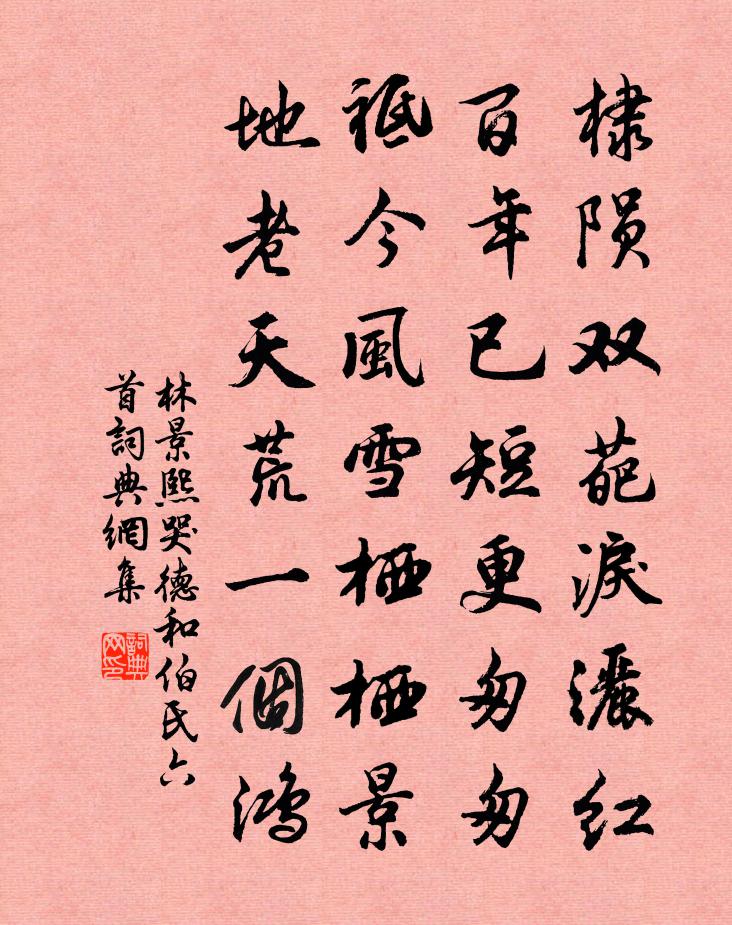 棣陨双葩淚灑红
百年已短更匆匆
祗今風雪栖栖景
地老天荒一個鸿
林景熙哭德和伯氏六
首詞典網集
詞典网印